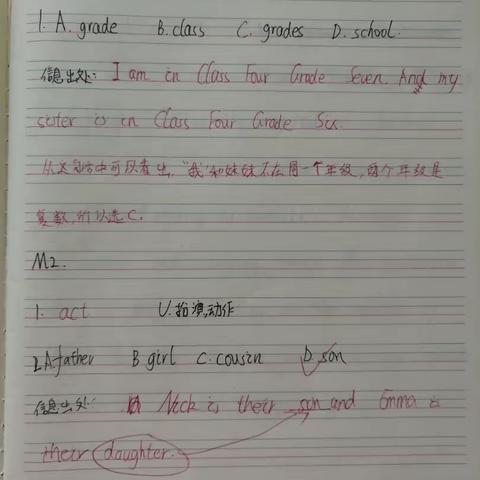 1. A. grade B. class C. grades D. school.
信息出处: I am in Class Four Grade Seven. And my
sister is in Class Four Grade Six.
从这句话中可以看出,"我"和妹妹不在同一个年级,两个年级是
复数,所以选C.
M2.
1. act U.扮演,动作
2.A.father B girl C. cousin D. son
信息出处: Nick is their son and Emma is
their daughter.